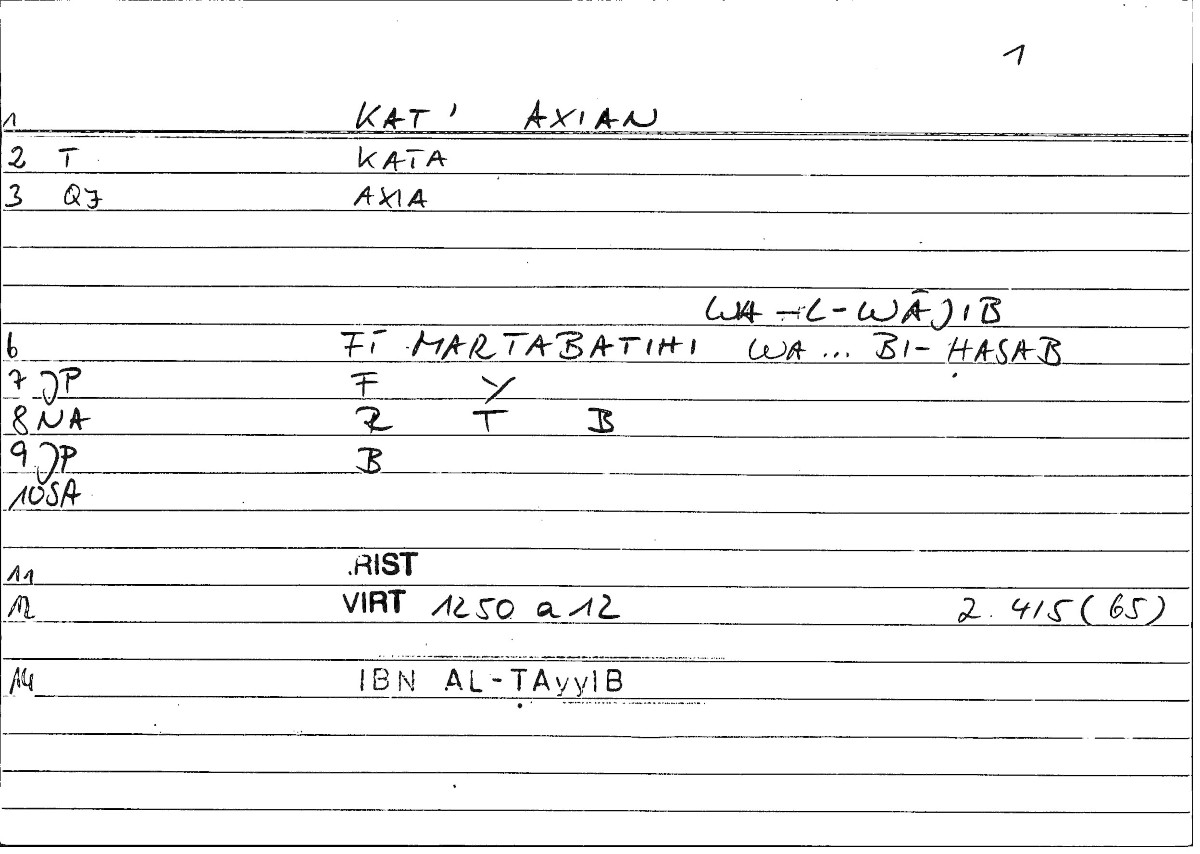 1
1 KAT' AXIAN
2 T KATA
3 Q7 AXIA
WA -L-WĀJIB
6 FĪ MARTABATIHI WA ... BI-ḤASAB
7 JP F Y
8 NA R T B
9 JP B
10 SA
11 .RIST
12 VIRT 1250 a 12 2. 415 (65)
14 IBN AL-ṬAyyIB